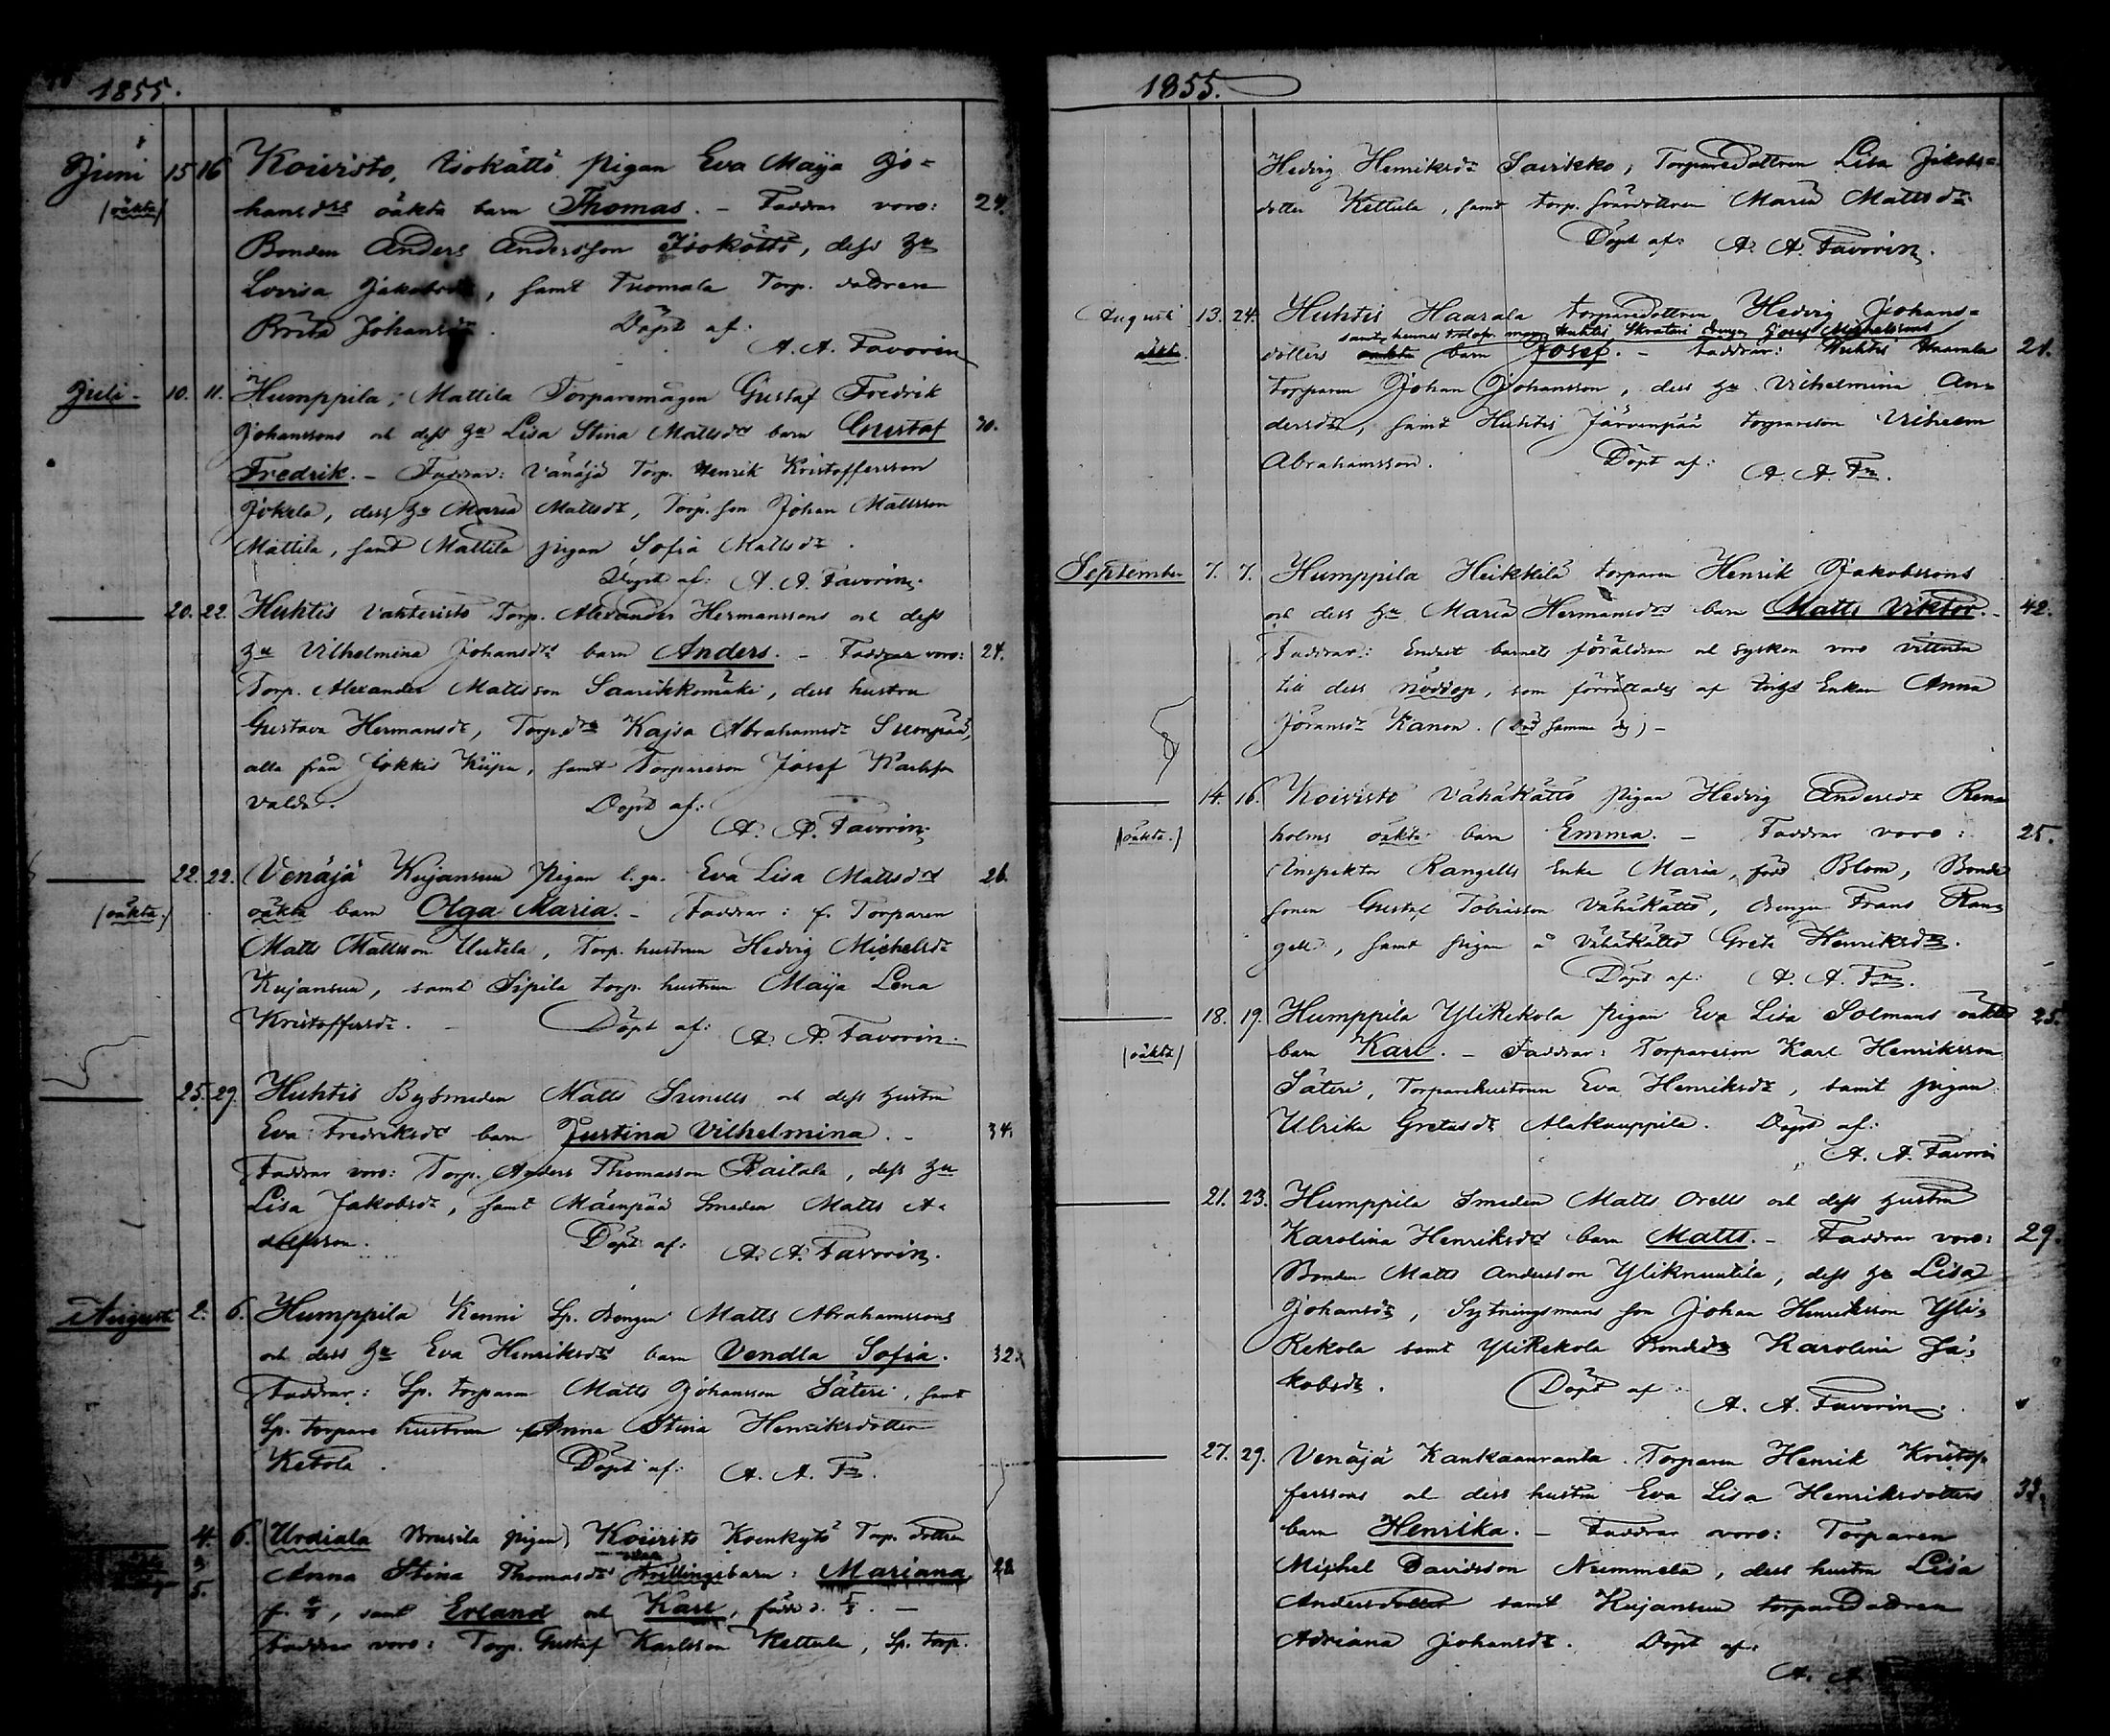 1855.
Juni 15 16 Koivisto, Isokättö pigan Eva Maija Jo-
(oäkta) hansdrs oäkta barn Thomas. - Faddrar voro: 24.
Bonden Anders Andersson Isokättö, dess hu
Lovisa Jakobsdr, samt Tuomala Torp. dottren
Brita Johansdr. Döpt af:
A. A. Favorin
Juli - 10. 11. Humppila, Mattila Torparemågen Gustaf Fredrik
Johanssons och dess hu Lisa Stina Mattsdrs barn Gustaf 30.
Fredrik. - Faddrar: Venäjä Torp. Henrik Kristoffersson
Jokela, dess hu Maria Mattsdr, Torp. son Johan Mattsson
Mattila, samt Mattila pigan Sofia Mattsdr.
Döpt af: A. A. Favorin.
20. 22. Huhtis Vahteristo Torp. Alexander Hermanssons och dess
hu Vilhelmina Johansdrs barn Anders. - Faddrar voro: 24.
Torp. Alexander Mattsson Saarikkomäki, dess hustru
Gustava Hermansdr, Torp.dr Kajsa Abrahamsdr Suonpää,
alla från Jokkis Kiipu, samt Torpareson Josef Karlsson
Valda. Döpt af:
A. A. Favorin.
22. 22. Venäjä Kujansuu pigan l. gu. Eva Lisa Mattsdrs 26.
(oäkta.) oäkta barn Olga Maria. - Faddrar: f. Torparen
Matts Mattsson Uutela, Torp. hustrun Hedvig Michelsdr
Kujansuu, samt Sipilä torp. hustrun Maija Lena
Kristoffersdr. - Döpt af: A. A. Favorin.
25. 29. Huhtis Bysmeden Matts Grenells och dess hustru
Eva Fredriksdrs barn Justina Vilhelmina. - 34.
Faddrar voro: Torp. Anders Thomasson Raitala, dess hu
Lisa Jakobsdr, samt Mäenpää Smeden Matts A-
dolfsson. Döpt af: A. A. Favorin.
Augusti 2. 6. Humppila Kenni Sp. drengen Matts Abrahamssons
och dess hu Eva Henriksdrs barn Vendla Sofia. 32.
Faddrar: Sp. torparen Matts Johansson Säteri, samt
Sp. torpare hustrun Anna Stina Henriksdotter
Ketola. Döpt af: A. A. Fn.
4. 6. (Urdiala Nuusila pigan) Koivisto Koenkytö Torp. dottren
Anna Stina Thomasdrs Trillingsbarn: Mariana, 28
5. f. 4/8, samt Erland och Karl, födde d. 5/8. -
Faddrar voro: Torp. Gustaf Karlsson Kettula, Sp. torp.
1855.
Hedvig Henriksdr Sairikko, Torparedottren Lisa Jakobs-
dotter Kettula, samt torp. sonadottren Maria Mattsdr.
Döpt af: A. A. Favorin.
Augusti 13. 24. Huhtis Haarala torparedottren Hedvig Johans-
samt hennes trolof. man Huhtis Skräteri dreng Josef Michelssons
oäkta. dotters oäkta barn Josef. - Faddrar: Huhtis Haarala 21.
torparen Johan Johansson, dess hu Vilhelmina An-
dersdr, samt Huhtis Järvenpää torpareson Vilhelm
Abrahamsson. Döpt af: A. A. Fn.
September 7. 7. Humppila Heikkilä torparen Henrik Jakobssons
och dess hu Maria Hermansdrs barn Matts Viktor. - 42.
Faddrar: Endast barnets föräldrar och syskon voro vittnen
till dess nöddop, som förrättades af Enkan Anna
Jöransdr Kanon. (Död samma dag) -
14. 16. Koivisto Vähäkättö pigan Hedvig Andersdr Ren-
(oäkta.) holms oäkta barn Emma. - Faddrar voro: 25.
Inspektor Rangells Enka Maria, född Blom, Bonde
sonen Gustaf Tobiasson Vähäkättö, drengen Frans Ran-
gell, samt pigan å Vähäkättö Greta Henriksdr.
Döpt af: A. A. Fn.
18. 19. Humppila YliRekola pigan Eva Lisa Solmans oäkta 25.
(oäkta) barn Karl. - Faddrar: Torpareson Karl Henriksson
Säteri, Torparehustrun Eva Henriksdr, samt pigan
Ulrika Gretasdr Alakauppila. Döpt af:
A. A. Favorin
21. 23. Humppila Smeden Matts Orells och dess hustru
Karolina Henriksdrs barn Matts. - Faddrar voro: 29.
Bonden Matts Andersson Yliknuutila, dess hu Lisa
Johansdr, Sytningsmans son Johan Henriksson Yli-
Rekola samt YliRekola Bondedr Karolina Ja-
kobsdr. Döpt af: A. A. Favorin.
27. 29. Venäjä Kankaanranta Torparen Henrik Kristof-
ferssons och dess hustru Eva Lisa Henriksdotters 33.
barn Henrika. - Faddrar voro: Torparen
Michel Davidsson Nummela, dess hustru Lisa
Andersdotter samt Kujansuu torparedottren
Adriana Johansdr. Döpt af:
A. A.